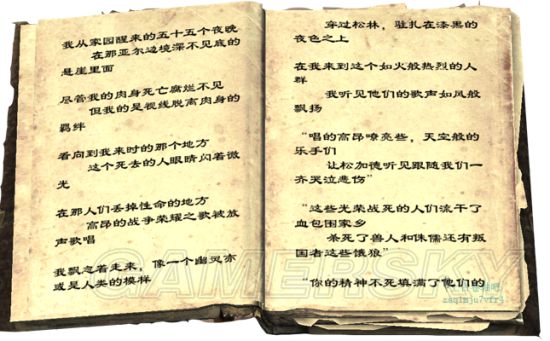 我从家园醒来的五十五个夜晚
在那亚尔边境深不见底的
悬崖里面
尽管我的肉身死亡腐烂不见
但我的是视线脱离肉身的
羁绊
看向到我来时的那个地方
这个死去的人眼睛闪着微
光
在那人们丢掉性命的地方
高昂的战争荣耀之歌被放
声歌唱
我飘忽着走来，像一个幽灵亦
或是人类的模样
穿过松林，驻扎在漆黑的
夜色之上
在我来到这个如火般热烈的人
群
我听见他们的歌声如风般
飘扬
“唱的高昂嘹亮些，天空般的
乐手们
让松加德听见跟随我们一
齐哭泣悲伤”
“这些光荣战死的人们流干了
血包围家乡
杀死了兽人和侏儒还有叛
国者这些饿狼”
“你的精神不死填满了他们的
GAMERSKY
zaqimju7vfr4